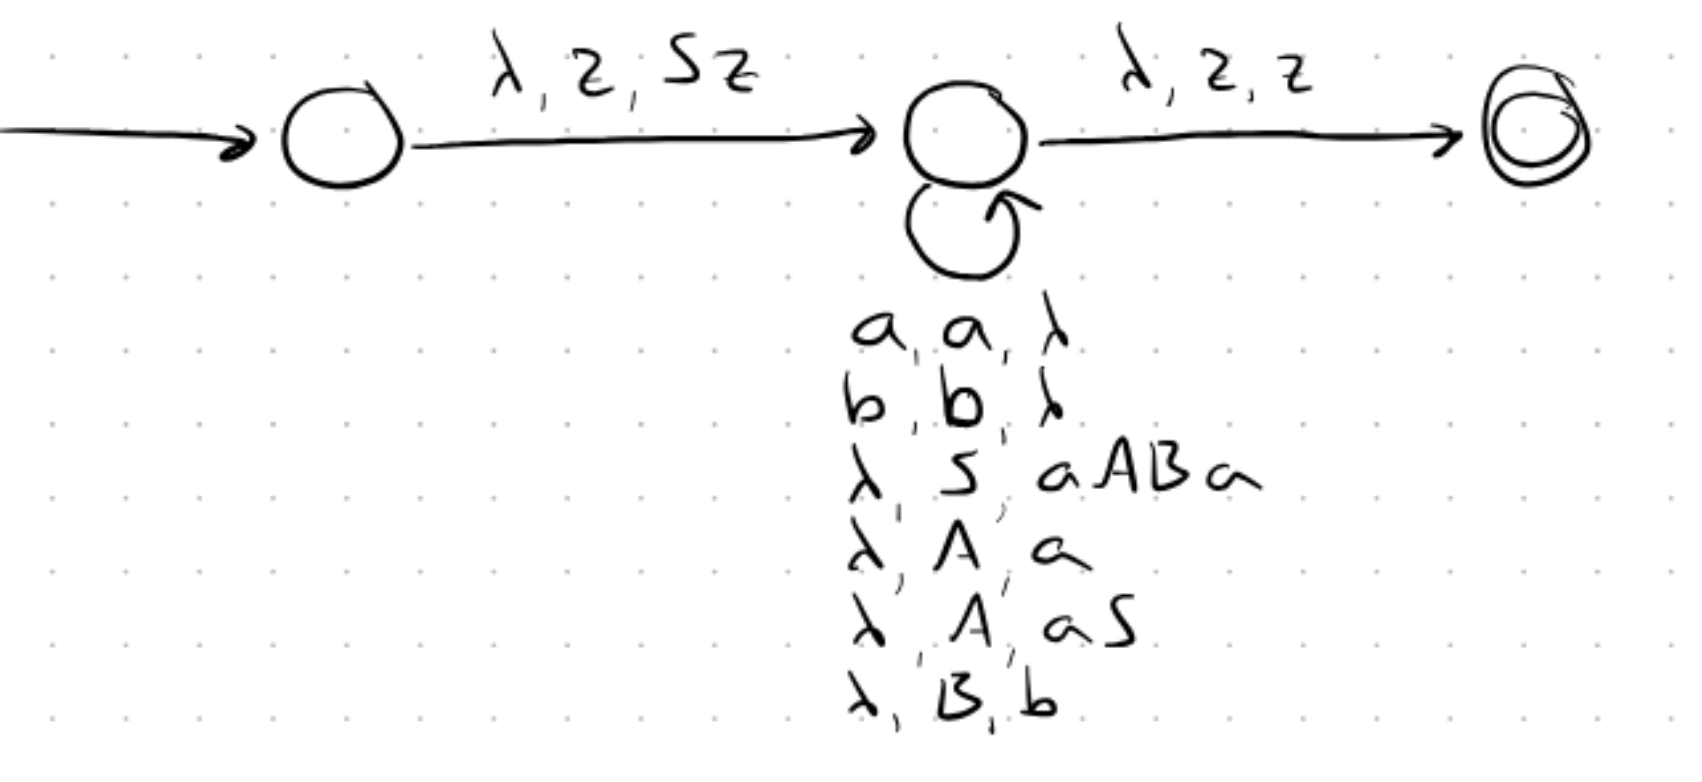 λ, z, Sz
λ, z, z
a, a, λ
b, b, λ
λ, S, aABa
λ, A, a
λ, A, aS
λ, B, b